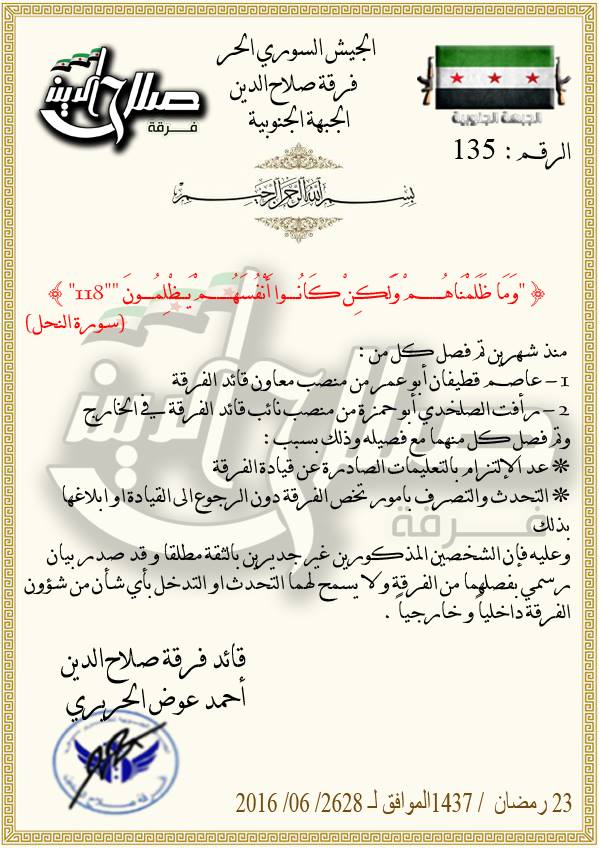 الجيش السوري الحر
فرقة صلاح الدين
الجبهة الجنوبية
صلاح الدين
فرقة
الجبهة الجنوبية
الرقم : 135
بسم الله الرحمن الرحيم
﴿ "وَمَا ظَلَمْنَاهُمْ وَلَكِنْ كَانُوا أَنْفُسَهُمْ يَظْلِمُونَ ""118" ﴾
(سورة النحل)
منذ شهرين تم فصل كل من :
1 – عاصم قطيفان أبو عمر من منصب معاون قائد الفرقة
2 – رأفت الصلخدي أبو حمزة من منصب نائب قائد الفرقة في الخارج
وتم فصل كل منهما مع فصيله وذلك بسبب :
* عد الإلتزام بالتعليمات الصادرة عن قيادة الفرقة
* التحدث والتصرف بامور تخص الفرقة دون الرجوع الى القيادة او ابلاغها
بذلك
وعليه فإن الشخصين المذكورين غير جديرين بالثقة مطلقا وقد صدر بيان
رسمي بفصلهما من الفرقة ولا يسمح لهما التحدث او التدخل بأي شأن من شؤون
الفرقة داخلياً وخارجياً .
قائد فرقة صلاح الدين
أحمد عوض الحريري
23 رمضان / 1437الموافق لـ 2628/ 06/ 2016